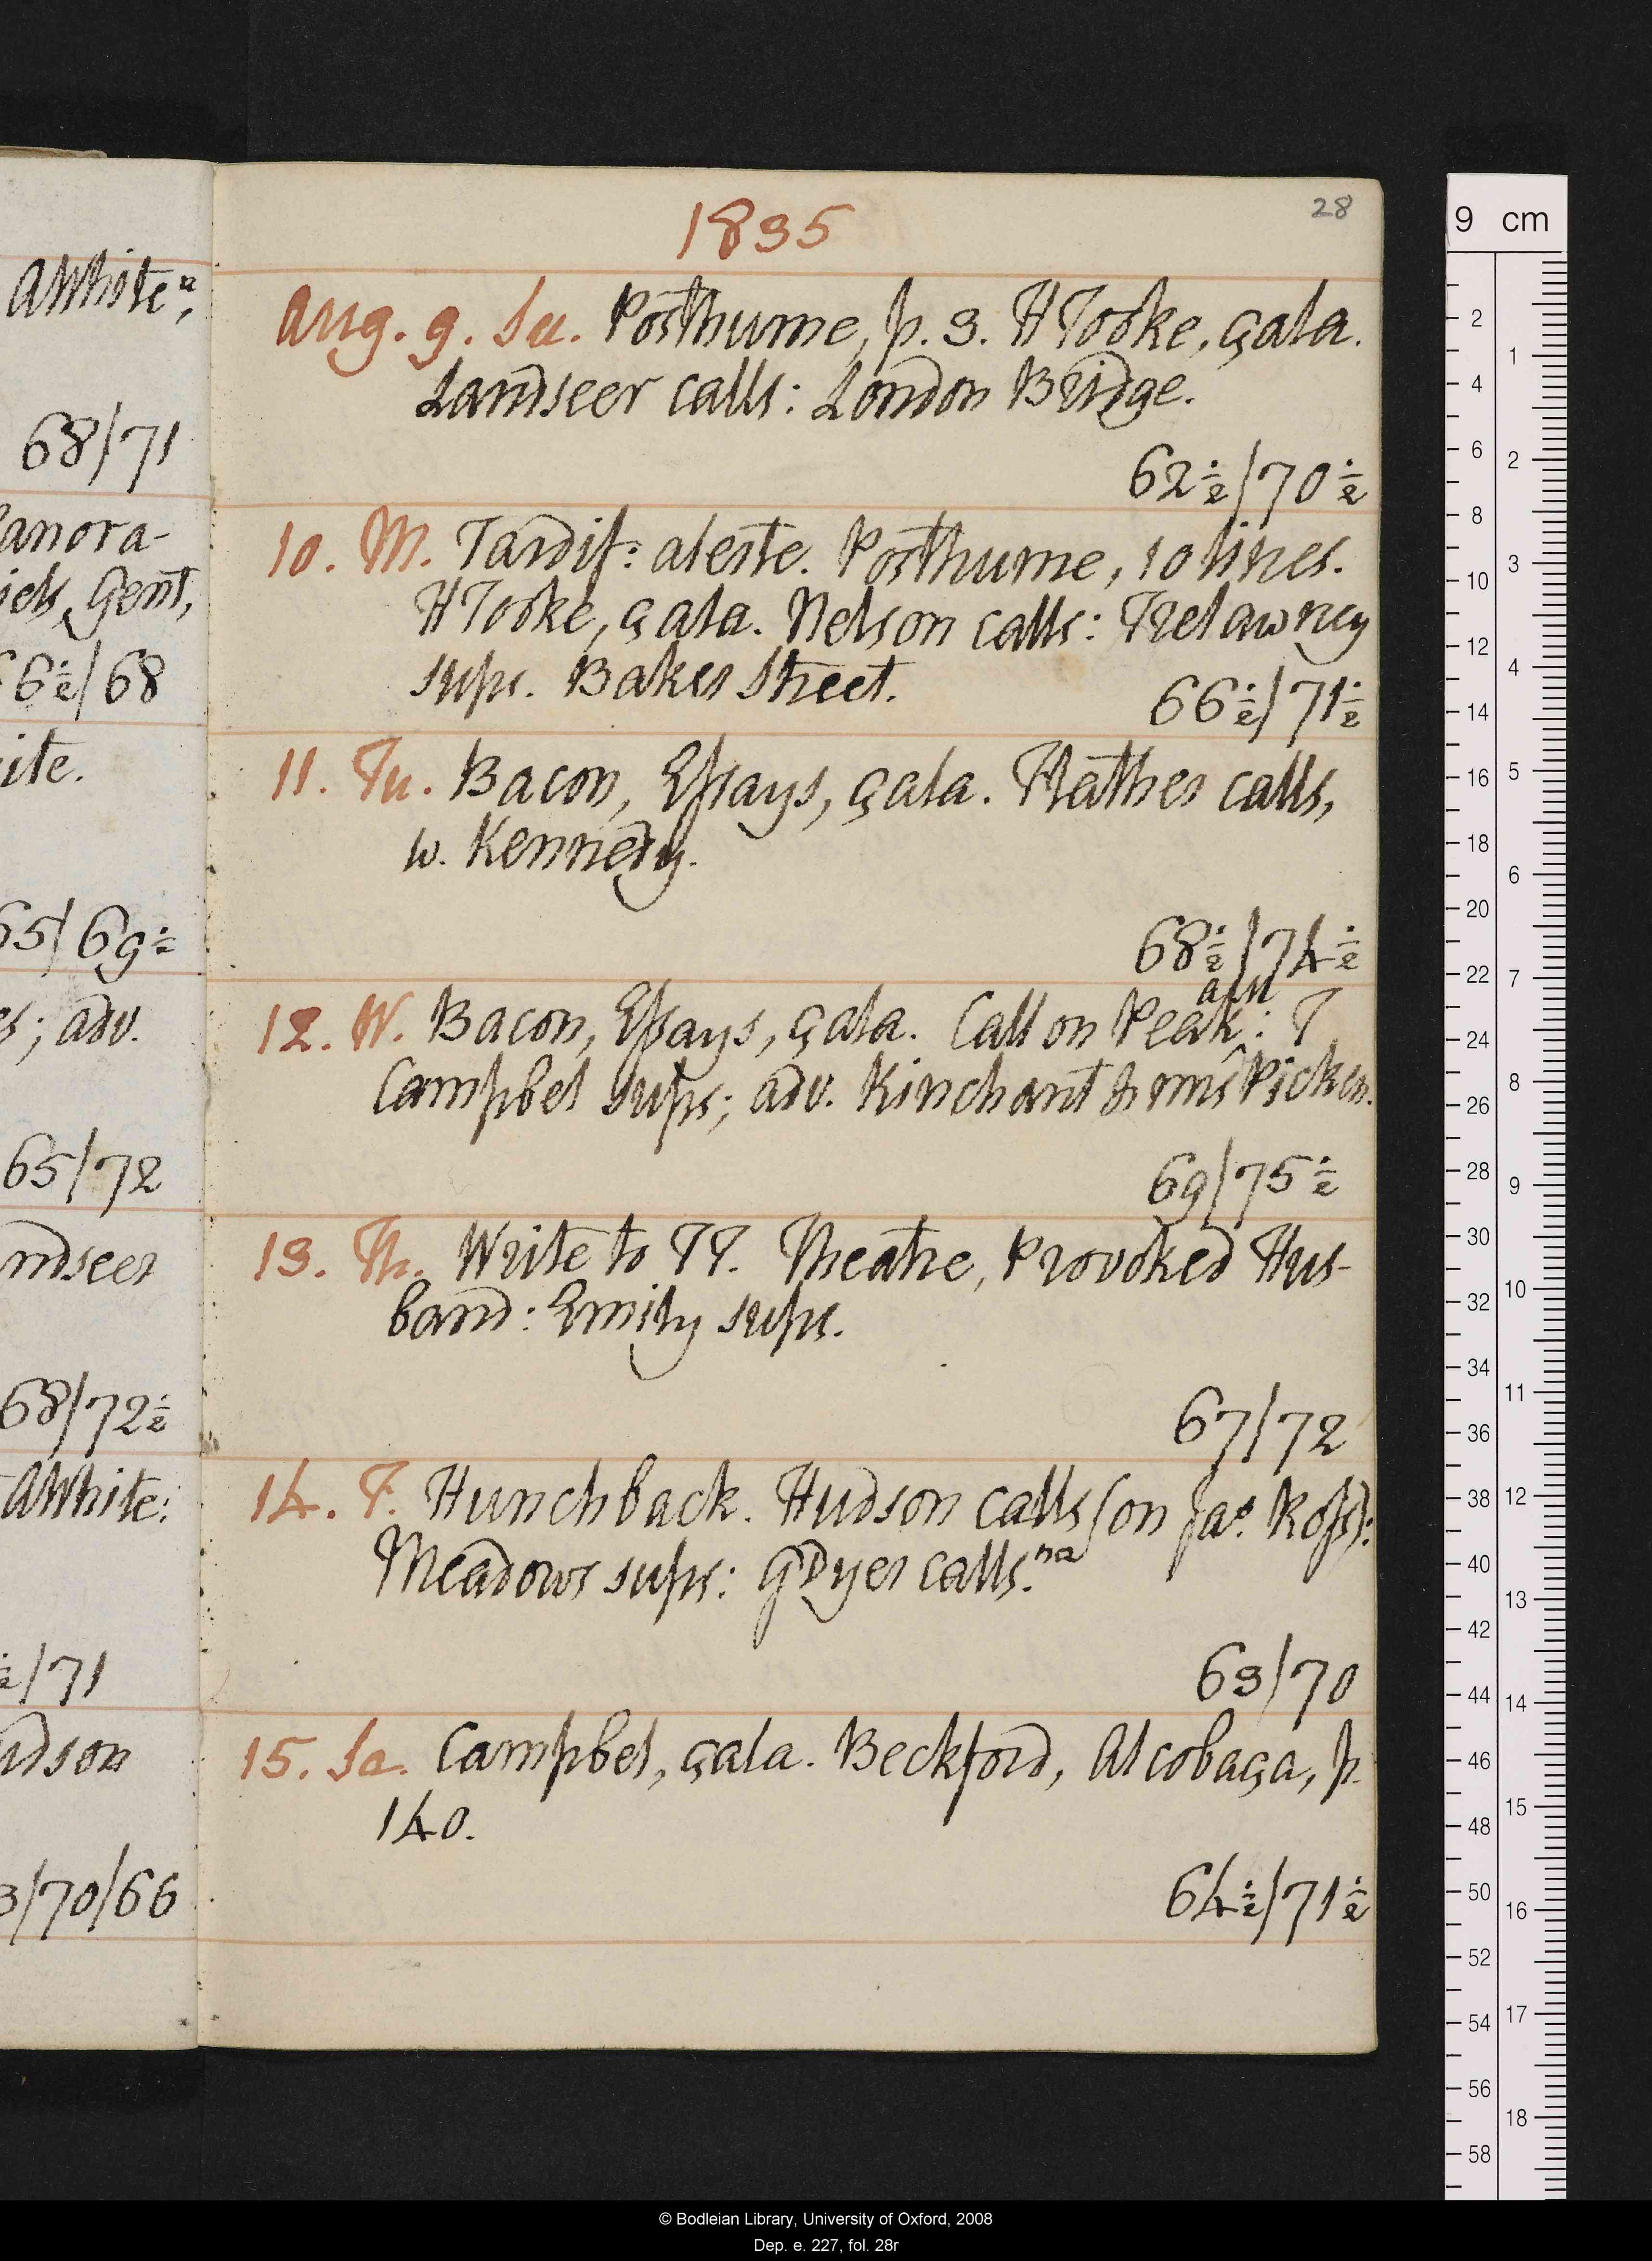 AWhite n,
68/71
anora-
iels, Gent,
66½/68
ite.
65/69½
es; adv.
65/72
ndseer
68/72½
AWhite:
½/71
udson
3/70/66
28
1835
Aug. 9. Su. Posthume, p. 3. HTooke, çala.
Landseer calls: London Bridge.
62½/70½
10. M. Tardif: aleste. Posthume, 10 lines.
HTooke, çala. Nelson calls: Trelawney
sups. Baker Street.
66½/71½
11. Tu. Bacon, Essays, çala. Flather calls,
w. Kennedy.
68½/74½
12. W. Bacon, Essays, çala. Call on Peak: T
Campbel sups; adv. Kinchant & mrs Picken.
69/75½
13. Th. Write to TT. Theatre, Provoked Hus-
band: Emily sups.
67/72
14. F. Hunchback. Hudson calls (on Jas. Ross):
Meadows sups: GDyer calls. na
63/70
15. Sa. Campbel, çala. Beckford, Alcobaça, p.
140.
64½/71½
9 cm
2
4
6
8
10
12
14
16
18
20
22
24
26
28
30
32
34
36
38
40
42
44
46
48
50
52
54
56
58
1
2
3
4
5
6
7
8
9
10
11
12
13
14
15
16
17
18
© Bodleian Library, University of Oxford, 2008
Dep. e. 227, fol. 28r